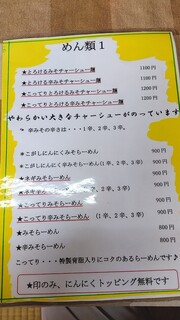 めん類1
★とろけるみそチャーシュー麺 1100円
★とろける辛みそチャーシュー麺 1100円
★こってりとろけるみそチャーシュー麺 1200円
★こってりとろける辛みそチャーシュー麺 1200円
やわらかい大きなチャーシューがのっています
・辛みその辛さは・・・1辛、2辛、3辛。
★こがしにんにくみそらーめん 900円
★こがしにんにく辛みそらーめん(1辛、2辛、3辛) 900円
★ネギみそらーめん 900円
★ネギ辛みそらーめん (1辛、2辛、3辛) 900円
★こってりみそらーめん 900円
★こってり辛みそらーめん (1辛、2辛、3辛) 900円
★みそらーめん 800円
★辛みそらーめん 800円
こってり・・・特製背脂入りにコクのあるらーめんです♪
★印のみ、にんにくトッピング無料です